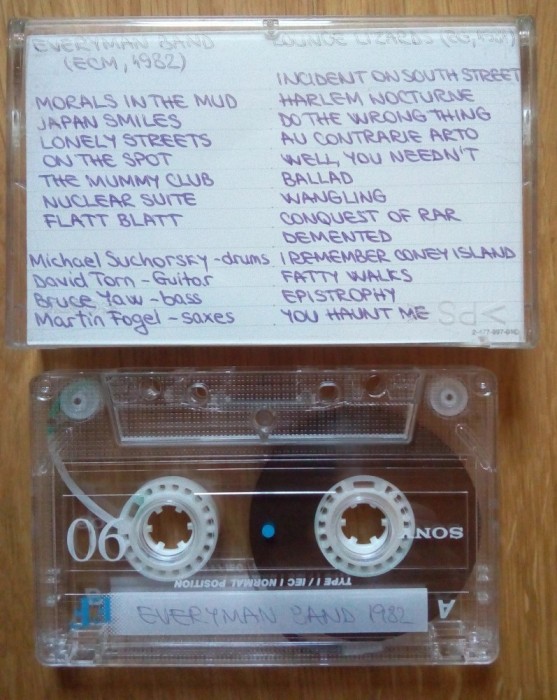 EVERYMAN BAND
(ECM, 1982)
MORALS IN THE MUD
JAPAN SMILES
LONELY STREETS
ON THE SPOT
THE MUMMY CLUB
NUCLEAR SUITE
FLATT BLATT
Michael Suchorsky - drums
David Torn - Guitar
Bruce Yaw - bass
Martin Fogel - saxes
LOUNGE LIZARDS
INCIDENT ON SOUTH STREET
HARLEM NOCTURNE
DO THE WRONG THING
AU CONTRARIE ARTO
WELL, YOU NEEDN'T
BALLAD
WANGLING
CONQUEST OF RAR
DEMENTED
I REMEMBER CONEY ISLAND
FATTY WALKS
EPISTROPHY
YOU HAUNT ME
90
SONY
TYPE I / IEC I NORMAL POSITION
EF
A
EVERYMAN BAND 1982